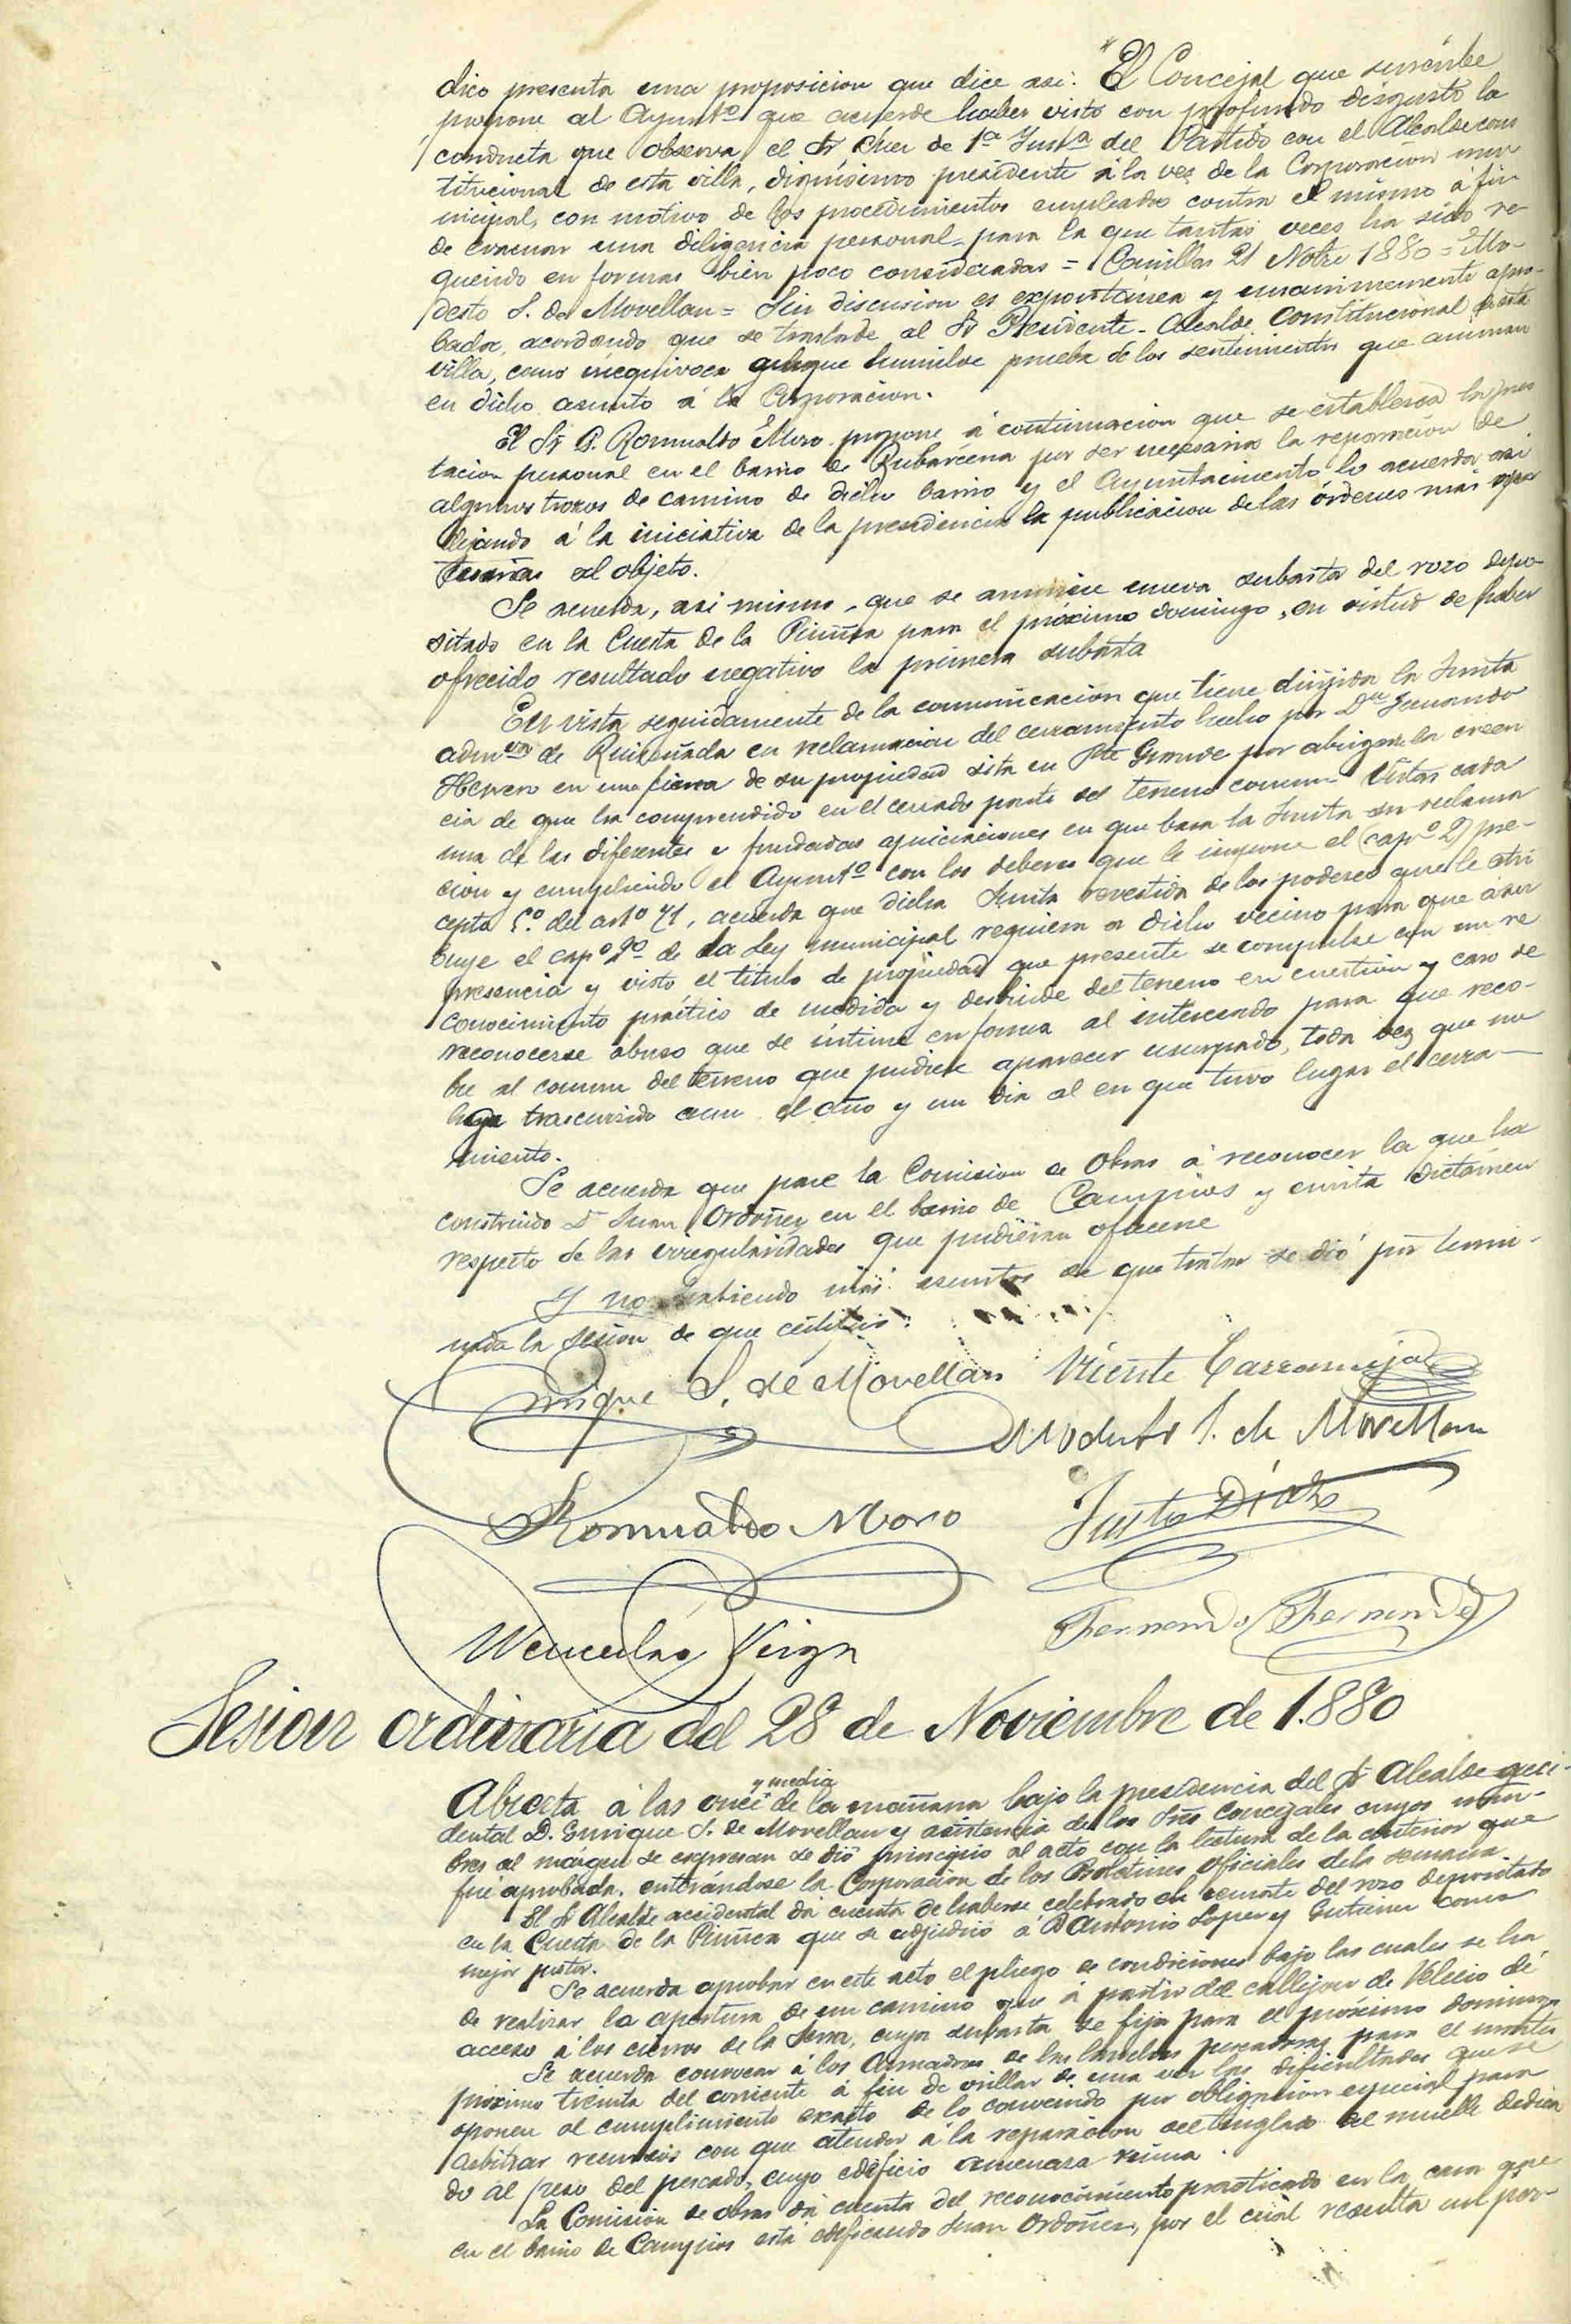 dico presenta una proposicion que dice asi: "El Concejal que suscribe
propone al Ayunt.º que acuerde haber visto con profundo disgusto la
conducta que observa el Sr Juez de 1.ª Inst.ª del Partido con el Alcalde cons
titucional de esta villa, dignísimo presidente á la vez de la Corporacion mu
nicipal, con motivo de los procedimientos empleados contra el mismo á fin
de evacuar una diligencia personal para la que tantas veces ha sido re-
querido en formas bien poco consideradas = Comillas 21 Nobre 1880 = Mo-
desto S. de Movellan = Sin discusion es expontánea y unanimemente apro-
bada, acordando que se traslade al Sr Presidente - Alcalde Constitucional de esta
villa, como inequivoca aunque humilde prueba de los sentimientos que animan
en dicho asunto á la Corporacion.
El Sr D. Romualdo Moro propone á continuacion que se establezca la pres
tacion personal en el barrio de Rubarcena por ser necesaria la reparacion de
algunos trozos de camino de dicho barrio y el Ayuntamiento lo acuerda asi
dejando á la iniciativa de la presidencia la publicacion de las órdenes mas
al objeto.
Se acuerda, asi mismo, que se anuncie nueva subasta del rozo depo-
sitado en la Cuesta de la para el próximo domingo, en virtud de haber
ofrecido resultado negativo la primera subasta
En vista seguidamente de la comunicacion que tiene dirijida la Junta
adm.va de Ruiseñada en reclamacion del cerramiento hecho por D.n Fernando
Herrero en una finca de su propiedad sita en Grande por abrigar la creen
cia de que ha comprendido en el cerrado parte del terreno comun. Vistas cada
una de las diferentes y fundadas apreciaciones en que basa la Junta su reclama
cion y cumpliendo el Ayunt.º con los deberes que le impone el (cap.º 2) pre-
cepto 5.º del art.º 71, acuerda que dicha Junta revestida de los poderes que le atri
buye el cap.º 2.º de la Ley municipal requiera a dicho vecino para que á su
presencia y visto el título de propiedad que presente se compulse con un re
conocimiento práctico de medida y deslinde del terreno en cuestion y caso de
reconocerse abuso que se íntime en forma al interesado para que reco-
bre al comun del terreno que pudiese aparecer usurpado, toda vez que no
haya trascurrido aun el año y un dia al en que tuvo lugar el cerra-
miento.
Se acuerda que pase la Comision de Obras á reconocer la que ha
construido D. Juan Ordoñez en el barrio de Campíos y emita dictámen
respecto de las irregularidades que pudieran ofrecerse
Y no habiendo mas asuntos de que tratar se dió por termi-
nada la sesion de que certifico.
Enrique S. de Movellan Vicente Carranceja
Modesto S. de Movellan
Romualdo Moro Justo Díaz
Wenceslao Veiga Fernando Fernandez
Sesion ordinaria del 28 de Noviembre de 1.880
y media
Abierta á las once de la mañana bajo la presidencia del Sr Alcalde acci-
dental D. Enrique S. de Movellan y asistencia de los Sres concejales cuyos nom-
bres al márgen se expresan se dió principio al acto con la lectura de la anterior que
fué aprobada, enterándose la Corporacion de los Boletines oficiales de la semana.
El Sr Alcalde accidental dá cuenta de haberse celebrado el remate del rozo depositado
en la Cuesta de la que se adjudicó á D Antonio Lopez y Gutierrez como
mejor postor.
Se acuerda aprobar en este acto el pliego de condiciones bajo las cuales se ha
de realizar la apertura de un camino que á partir del callejon de Velecio dé
acceso á los cierros de la Serna, cuya subasta se fija para el próximo domingo
Se acuerda convocar á los Armadores de las lanchas pescadoras para el martes
próximo treinta del corriente á fin de orillar de una vez las dificultades que se
oponen al cumplimiento exacto de lo convenido por obligacion especial para
arbitrar recursos con que atender á la reparacion del tinglado del muelle dedica
do al peso del pescado, cuyo edificio amenaza ruina.
La Comision de obras dá cuenta del reconocimiento practicado en la casa que
en el barrio de Campíos está edificando Juan Ordoñez, por el cual resulta un por-